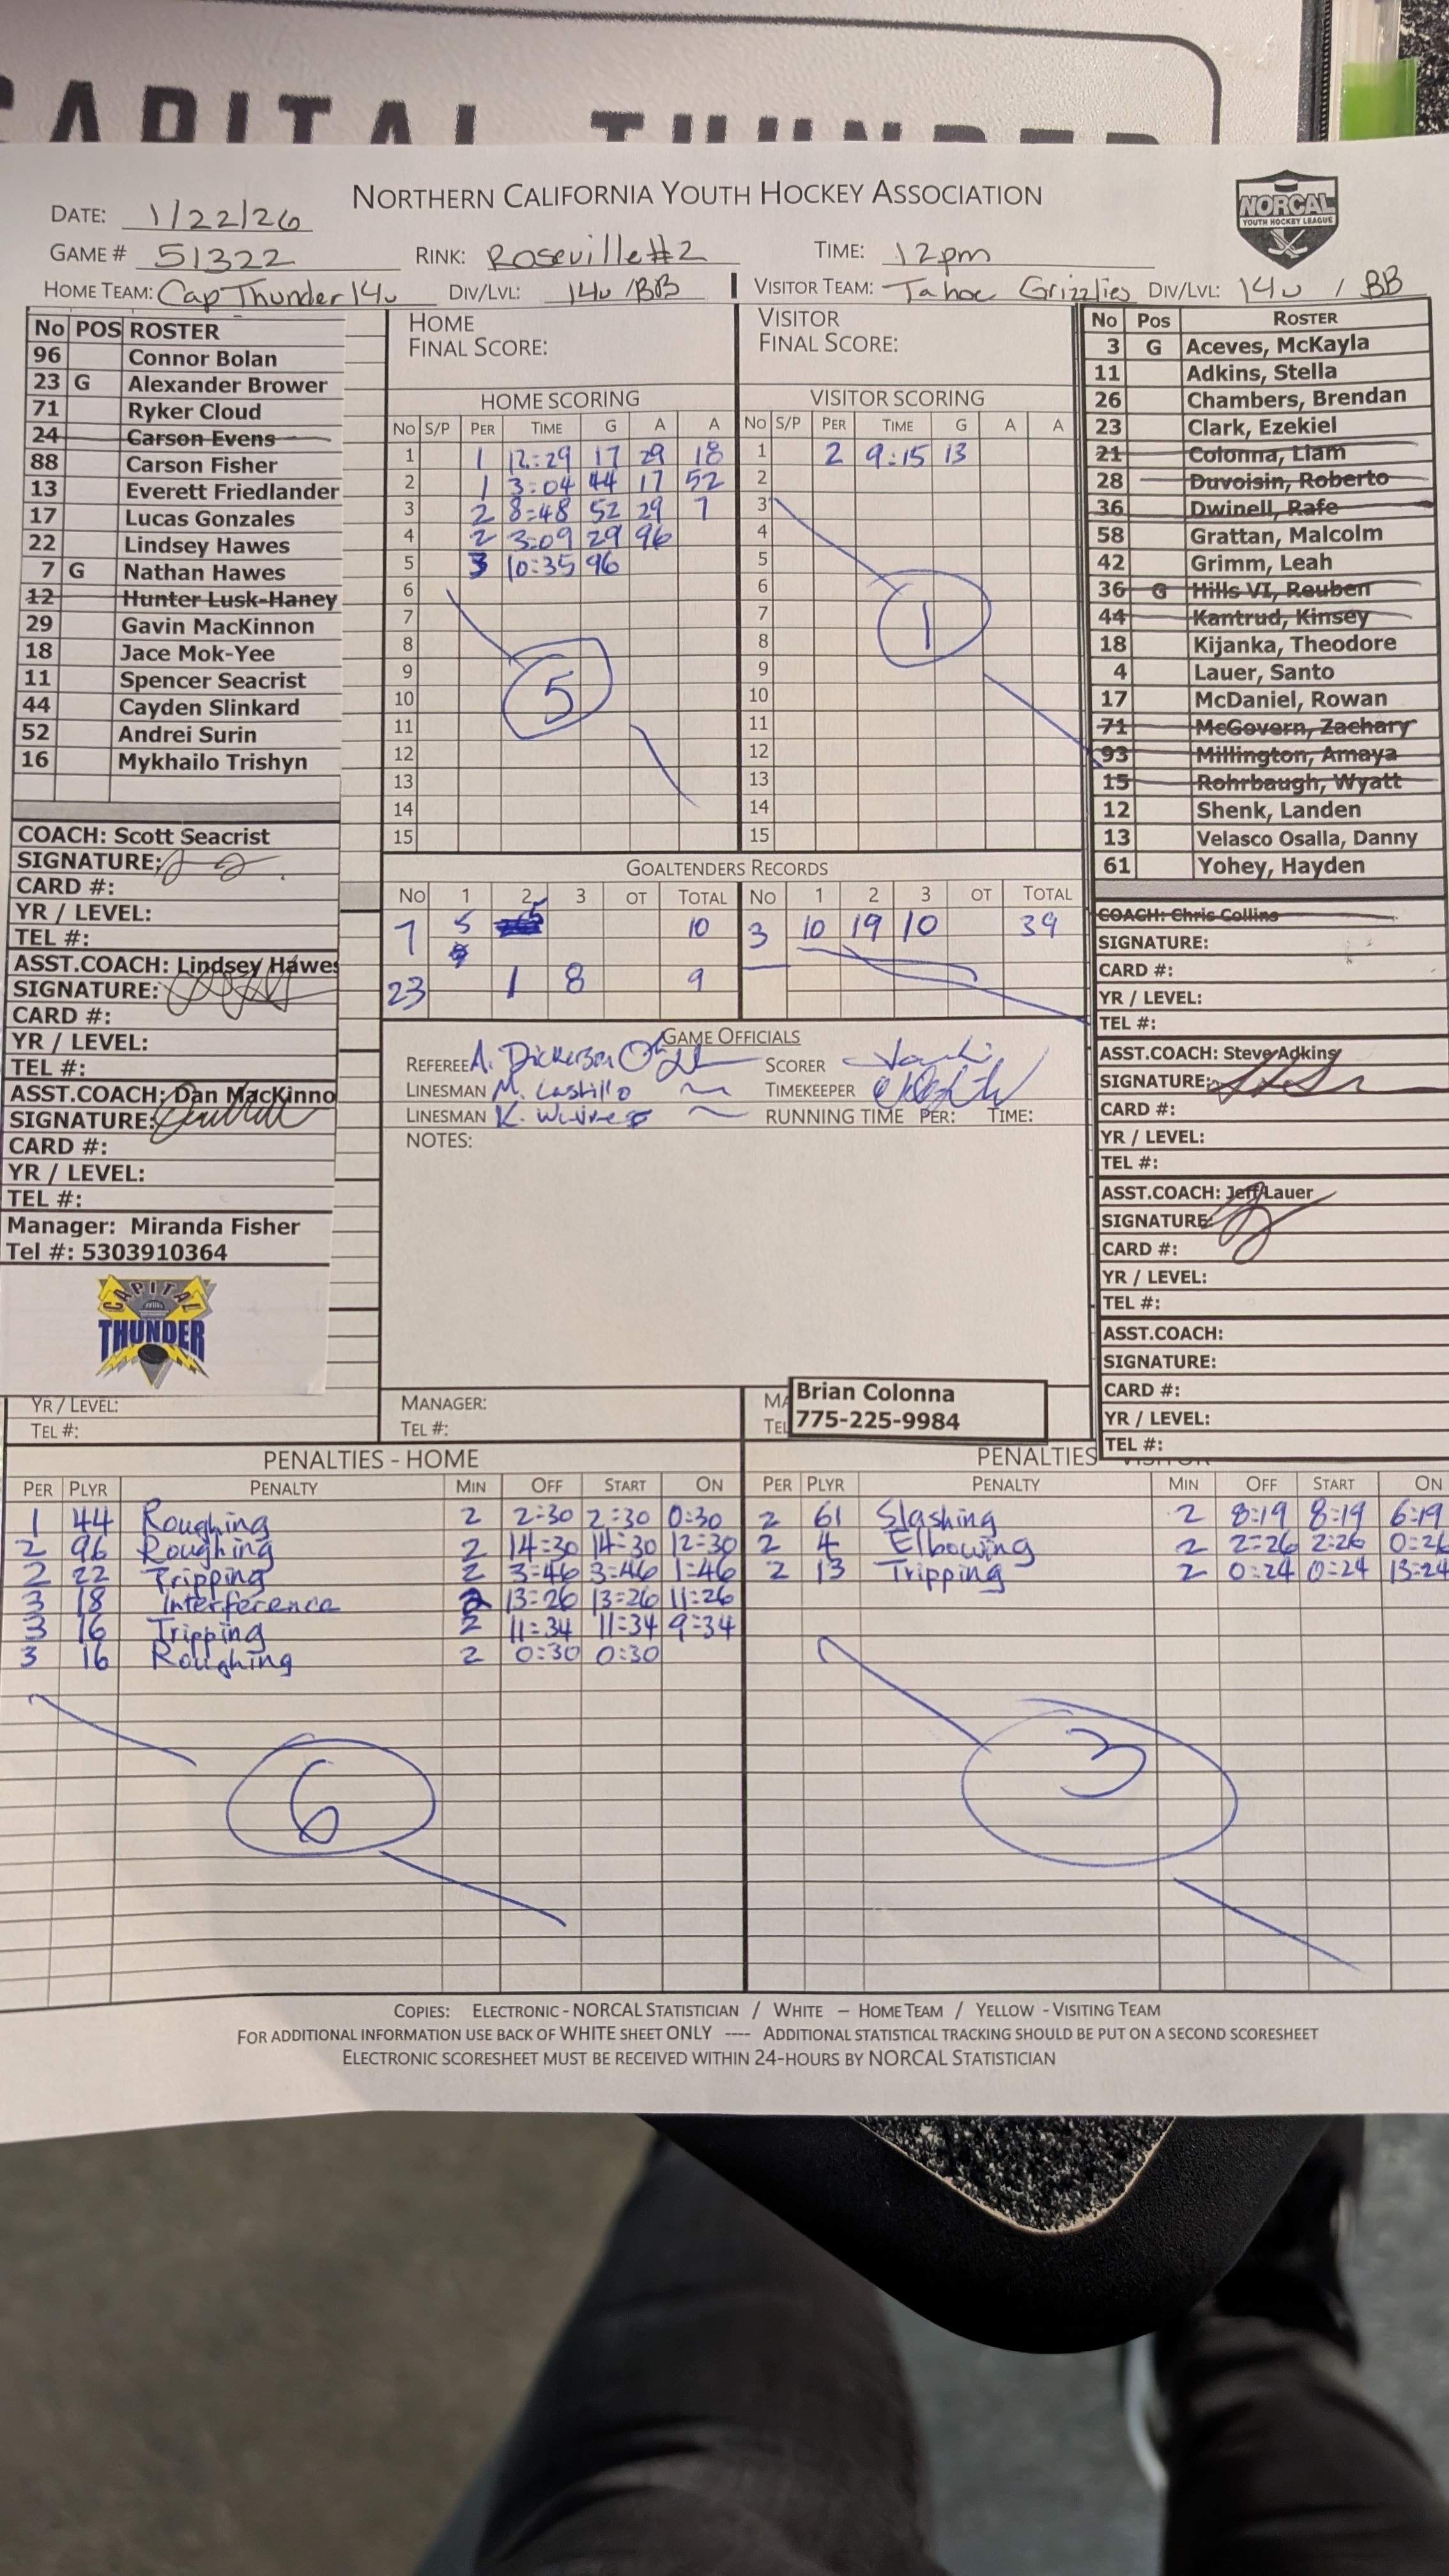 CAPITAL THUNDER
NORTHERN CALIFORNIA YOUTH HOCKEY ASSOCIATION
NORCAL
YOUTH HOCKEY LEAGUE
DATE: 1/22/26
GAME # 51322 RINK: Roseville #2 TIME: 12pm
HOME TEAM: Cap Thunder 14u DIV/LVL: 14u /BB VISITOR TEAM: Tahoe Grizzlies DIV/LVL: 14u / BB
No POS ROSTER
96 Connor Bolan
23 G Alexander Brower
71 Ryker Cloud
24 Carson Evens
88 Carson Fisher
13 Everett Friedlander
17 Lucas Gonzales
22 Lindsey Hawes
7 G Nathan Hawes
12 Hunter Lusk-Haney
29 Gavin MacKinnon
18 Jace Mok-Yee
11 Spencer Seacrist
44 Cayden Slinkard
52 Andrei Surin
16 Mykhailo Trishyn
COACH: Scott Seacrist
SIGNATURE:
CARD #:
YR / LEVEL:
TEL #:
ASST.COACH: Lindsey Hawes
SIGNATURE:
CARD #:
YR / LEVEL:
TEL #:
ASST.COACH: Dan MacKinno
SIGNATURE:
CARD #:
YR / LEVEL:
TEL #:
Manager: Miranda Fisher
Tel #: 5303910364
CAPITAL
THUNDER
YR / LEVEL:
TEL #:
HOME
FINAL SCORE:
HOME SCORING
NO S/P PER TIME G A A
1 1 12:29 17 29 18
2 1 3:04 44 17 52
3 2 8:48 52 29 7
4 2 3:09 29 96
5 3 10:35 96
6
7
8
9
10
11
12
13
14
15
5
VISITOR
FINAL SCORE:
VISITOR SCORING
NO S/P PER TIME G A A
1 2 9:15 13
2
3
4
5
6
7
8
9
10
11
12
13
14
15
1
GOALTENDERS RECORDS
NO 1 2 3 OT TOTAL NO 1 2 3 OT TOTAL
7 5 5 10 3 10 19 10 39
23 1 8 9
GAME OFFICIALS
REFEREE A. Dickerson SCORER
LINESMAN M. Castillo TIMEKEEPER
LINESMAN K. RUNNING TIME PER: TIME:
NOTES:
MANAGER:
TEL #:
MA
TEL
Brian Colonna
775-225-9984
No Pos ROSTER
3 G Aceves, McKayla
11 Adkins, Stella
26 Chambers, Brendan
23 Clark, Ezekiel
21 Colonna, Liam
28 Duvoisin, Roberto
36 Dwinell, Rafe
58 Grattan, Malcolm
42 Grimm, Leah
36 G Hills VI, Reuben
44 Kantrud, Kinsey
18 Kijanka, Theodore
4 Lauer, Santo
17 McDaniel, Rowan
71 McGovern, Zachary
93 Millington, Amaya
15 Rohrbaugh, Wyatt
12 Shenk, Landen
13 Velasco Osalla, Danny
61 Yohey, Hayden
COACH: Chris Collins
SIGNATURE:
CARD #:
YR / LEVEL:
TEL #:
ASST.COACH: Steve Adkins
SIGNATURE:
CARD #:
YR / LEVEL:
TEL #:
ASST.COACH: Jeff Lauer
SIGNATURE:
CARD #:
YR / LEVEL:
TEL #:
ASST.COACH:
SIGNATURE:
CARD #:
YR / LEVEL:
TEL #:
PENALTIES - HOME
PER PLYR PENALTY MIN OFF START ON
1 44 Roughing 2 2:30 2:30 0:30
2 96 Roughing 2 14:30 14:30 12:30
2 22 Tripping 2 3:46 3:46 1:46
3 18 Interference 2 13:26 13:26 11:26
3 16 Tripping 2 11:34 11:34 9:34
3 16 Roughing 2 0:30 0:30
6
PENALTIES
PER PLYR PENALTY MIN OFF START ON
2 61 Slashing 2 8:19 8:19 6:19
2 4 Elbowing 2 2:26 2:26 0:26
2 13 Tripping 2 0:24 0:24 13:24
3
COPIES: ELECTRONIC - NORCAL STATISTICIAN / WHITE – HOME TEAM / YELLOW - VISITING TEAM
FOR ADDITIONAL INFORMATION USE BACK OF WHITE SHEET ONLY ---- ADDITIONAL STATISTICAL TRACKING SHOULD BE PUT ON A SECOND SCORESHEET
ELECTRONIC SCORESHEET MUST BE RECEIVED WITHIN 24-HOURS BY NORCAL STATISTICIAN